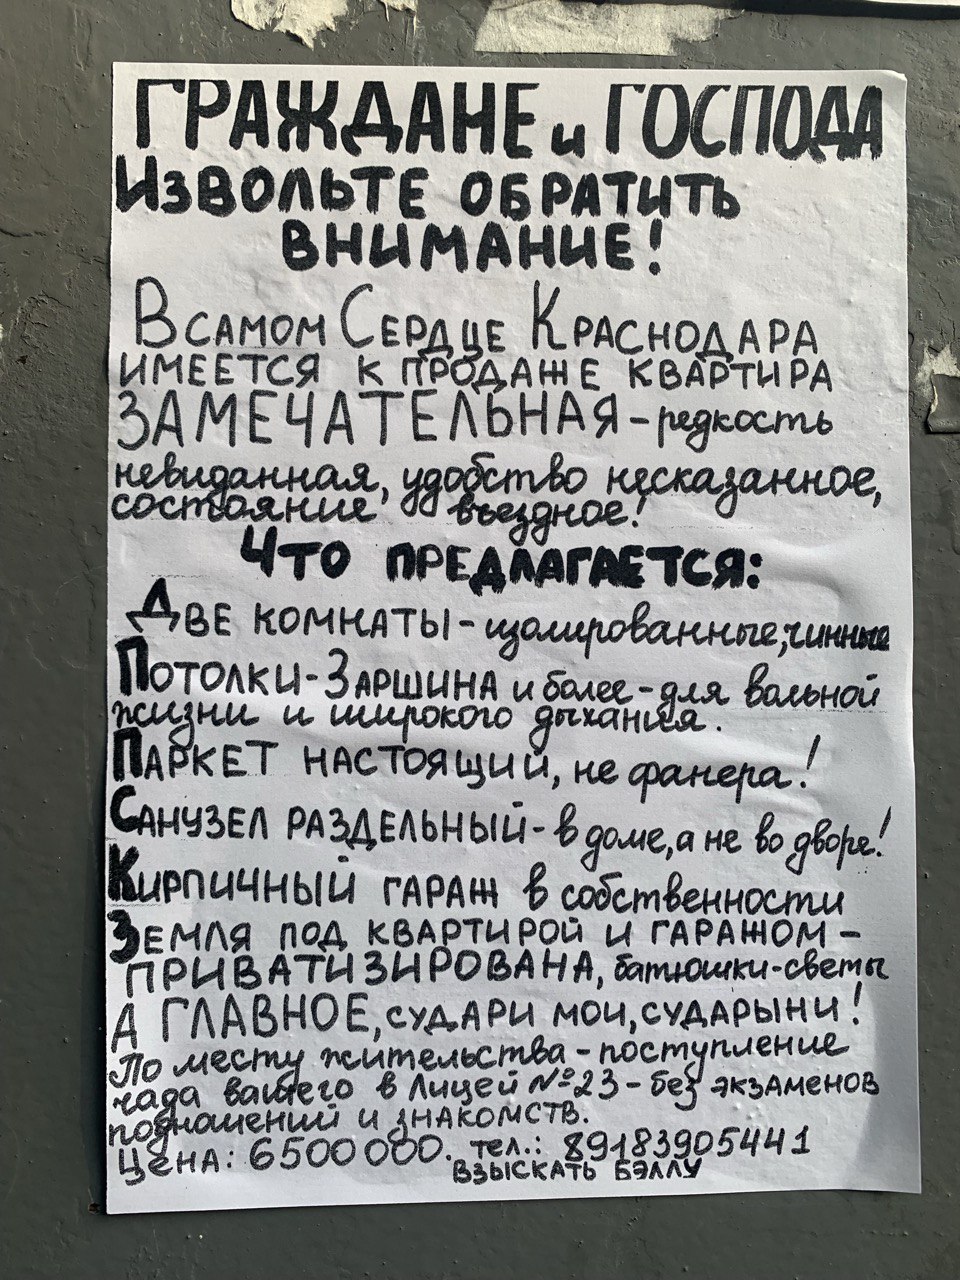 ГРАЖДАНЕ и ГОСПОДА
ИЗВОЛЬТЕ ОБРАТИТЬ
ВНИМАНИЕ!
В САМОМ СЕРДЦЕ КРАСНОДАРА
ИМЕЕТСЯ К ПРОДАЖЕ КВАРТИРА
ЗАМЕЧАТЕЛЬНАЯ - редкость
невиданная, удобство несказанное,
состояние въездное!
ЧТО ПРЕДЛАГАЕТСЯ:
ДВЕ КОМНАТЫ - изолированные, чинные
ПОТОЛКИ - 3 АРШИНА и более - для вольной
жизни и широкого дыхания.
ПАРКЕТ НАСТОЯЩИЙ, не фанера!
САНУЗЕЛ РАЗДЕЛЬНЫЙ - в доме, а не во дворе!
КИРПИЧНЫЙ ГАРАЖ в собственности
ЗЕМЛЯ ПОД КВАРТИРОЙ И ГАРАЖОМ -
ПРИВАТИЗИРОВАНА, батюшки-светы
А ГЛАВНОЕ, СУДАРИ МОИ, СУДАРЫНИ!
По месту жительства - поступление
чада вашего в Лицей №23 - без экзаменов
подношений и знакомств.
ЦЕНА: 6500 000. тел.: 89183905441
ВЗЫСКАТЬ БЭЛЛУ